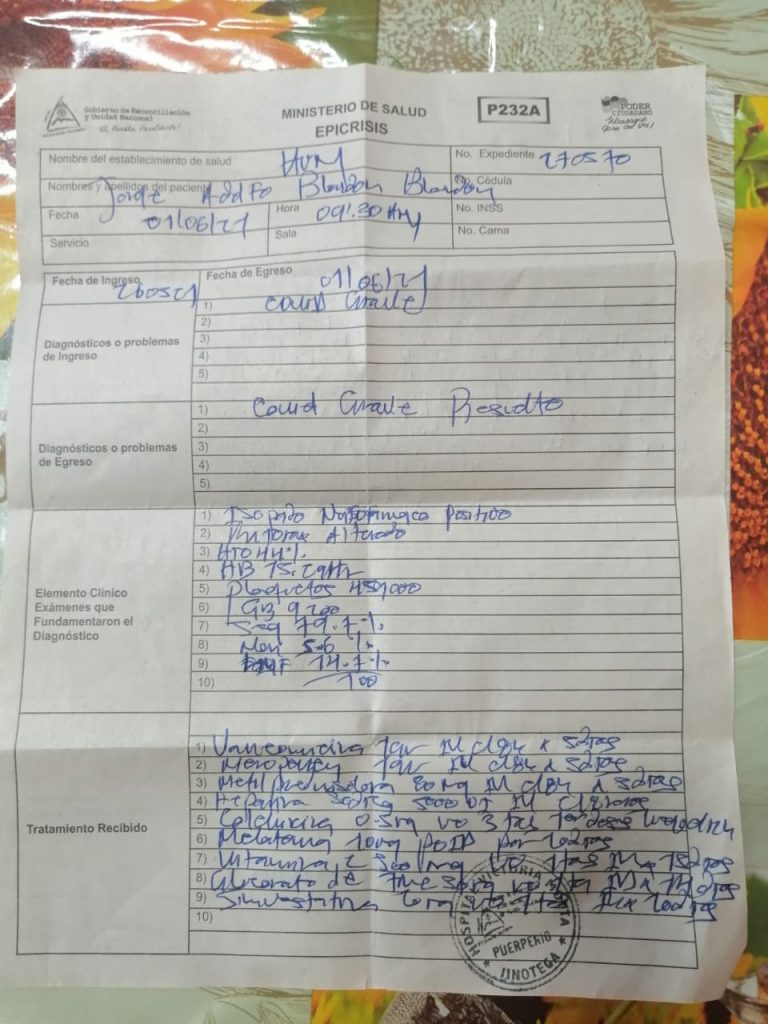 Gobierno de Reconciliación
y Unidad Nacional
El Pueblo, Presidente!
MINISTERIO DE SALUD
EPICRISIS
P232A
PODER
CIUDADANO
Nombre del establecimiento de salud HVM No. Expediente 270570
Nombres y apellidos del paciente Jorge Adolfo Blandon Blandon No. Cédula
Fecha 01/06/21 Hora 09:30 Am No. INSS
Servicio Sala No. Cama
Fecha de Ingreso 260521 Fecha de Egreso 01/06/21
Diagnósticos o problemas
de Ingreso
1) Covid Grave
2)
3)
4)
5)
Diagnósticos o problemas
de Egreso
1) Covid Grave Resuelto
2)
3)
4)
5)
Elemento Clínico
Exámenes que
Fundamentaron el
Diagnóstico
1) Isopado Nasofaringeo Positivo
2) Alterado
3) HTO 44%
4) HB 15.2
5) Plaquetas 459,000
6) GB 9200
7) Seg 79.7%
8) Mon 5.6 %
9) 14.7%
10) 100
Tratamiento Recibido
1) Vancomicina 1gr IV c/8h x 5dias
2) Meropenem 1gr IV c/8h x 5dias
3) Metilprednisolona 80 mg IV c/8h x 5dias
4) Heparina 5000 UI IV
5) Colchicina 0.5mg vo 3 tas
6) Melatonina 10mg por 10dias
7) Vitamina C 500 mg vo 1tas
8) Gluconato de Zinc 50mg vo 1ta
9) Simvastatina
10)
HOSPITAL VICTORIA MOTTA
PUERPERIO
JINOTEGA